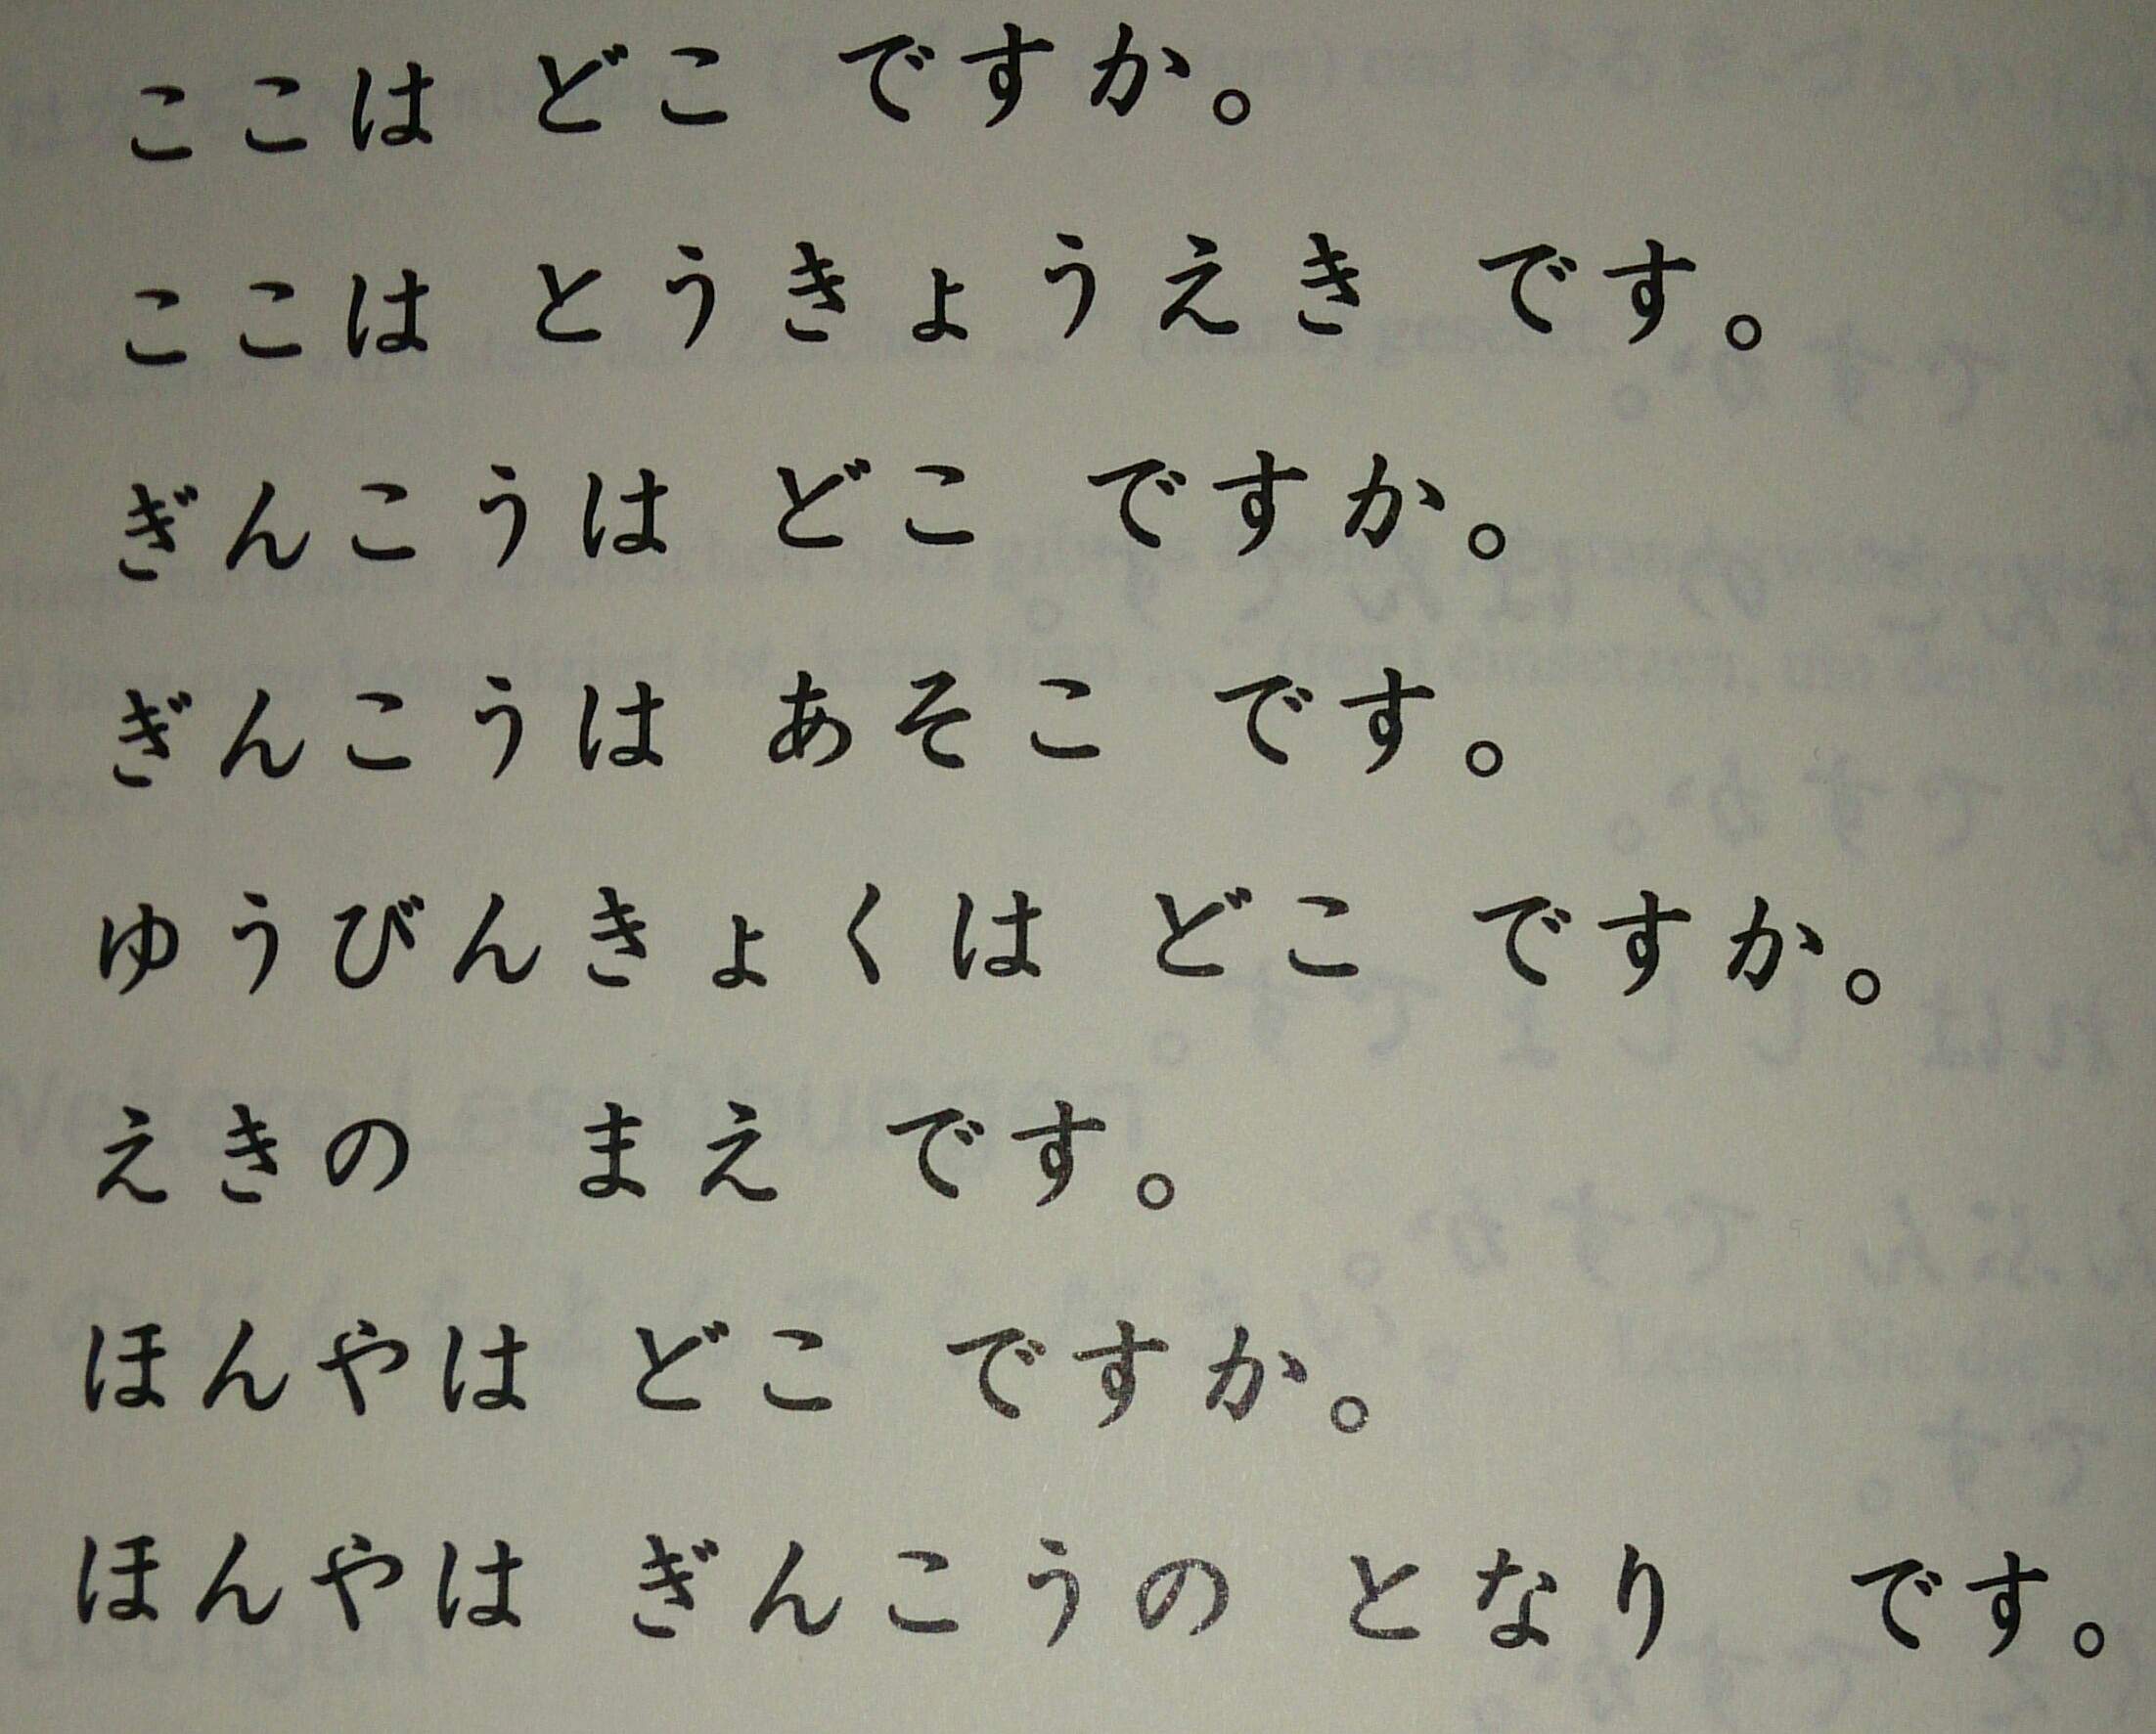 ここは どこ ですか。
ここは とうきょうえき です。
ぎんこうは どこ ですか。
ぎんこうは あそこ です。
ゆうびんきょくは どこ ですか。
えきの まえ です。
ほんやは どこ ですか。
ほんやは ぎんこうの となり です。